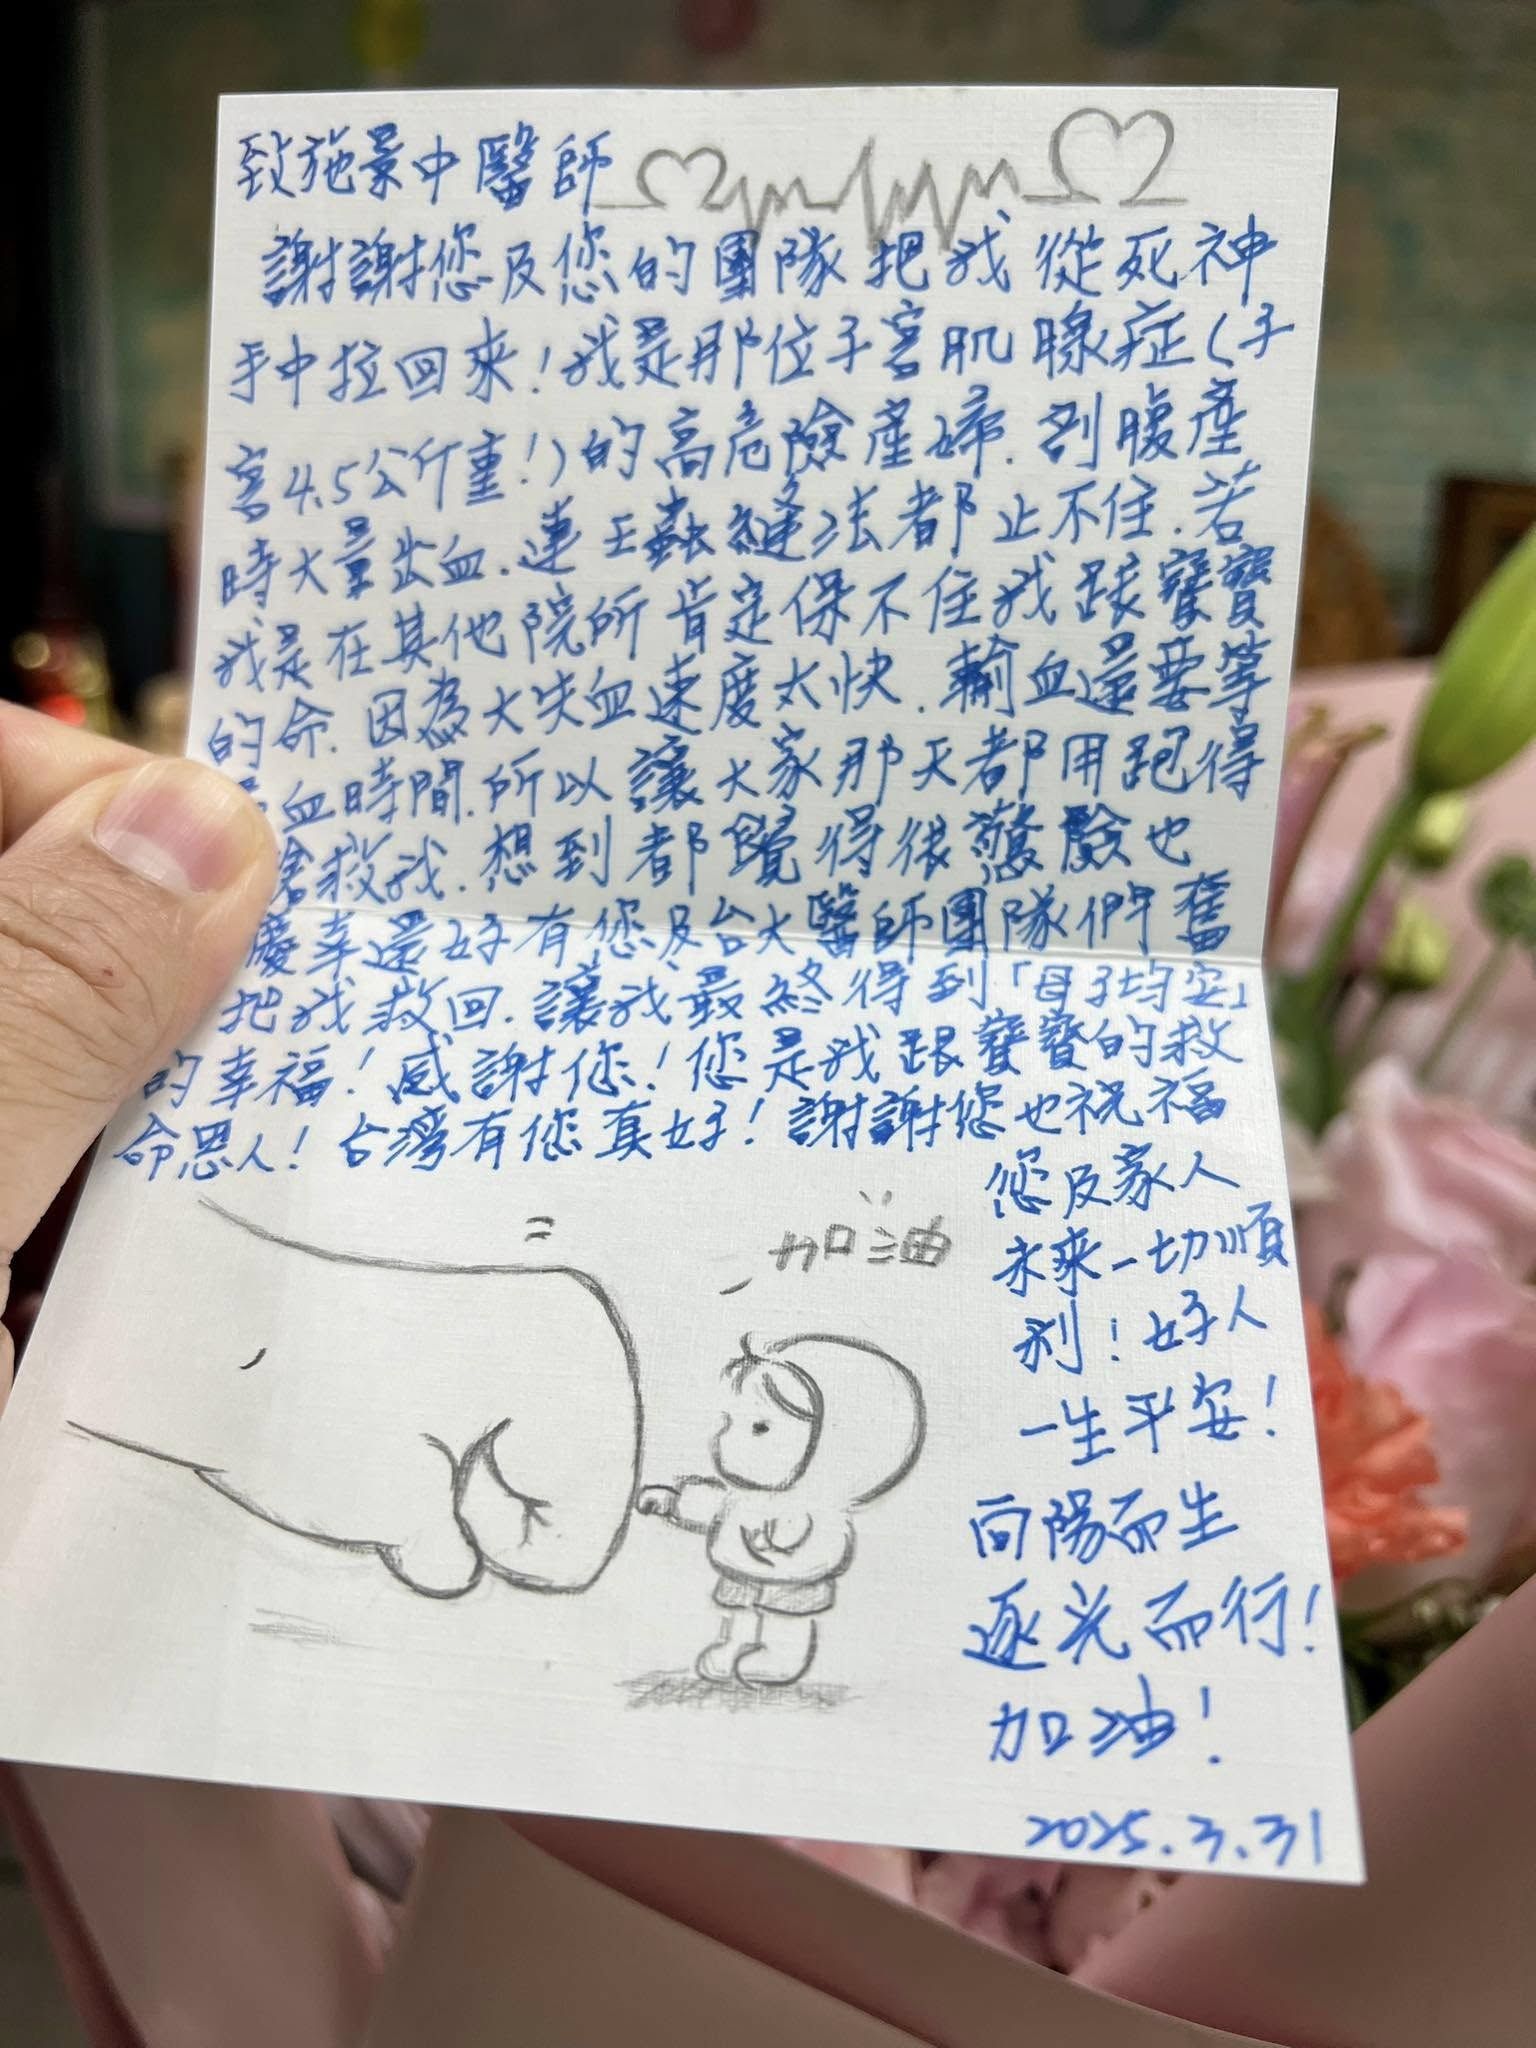 致施景中醫師
謝謝您及您的團隊把我從死神
手中拉回來!我是那位子宮肌腺症(子
宮4.5公斤重!)的高危險產婦.剖腹產
時大量出血.連王蟲縫法都止不住.若
我是在其他院所肯定保不住我跟寶寶
的命.因為大失血速度太快.輸血還要等
血時間.所以讓大家那天都用跑得
搶救我.想到都覺得很驚險也
慶幸還好有您及台大醫師團隊們奮
把我救回.讓我最終得到「母子均安」
的幸福!感謝您!您是我跟寶寶的救
命恩人!台灣有您真好!謝謝您也祝福
您及家人
未來一切順
利!好人
一生平安!
向陽而生
逐光而行!
加油!
加油
2025.3.31